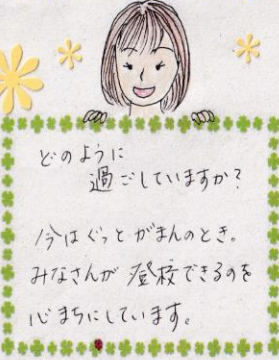 どのように
過ごしていますか？
今はぐっとがまんのとき。
みなさんが登校できるのを
心まちにしています。